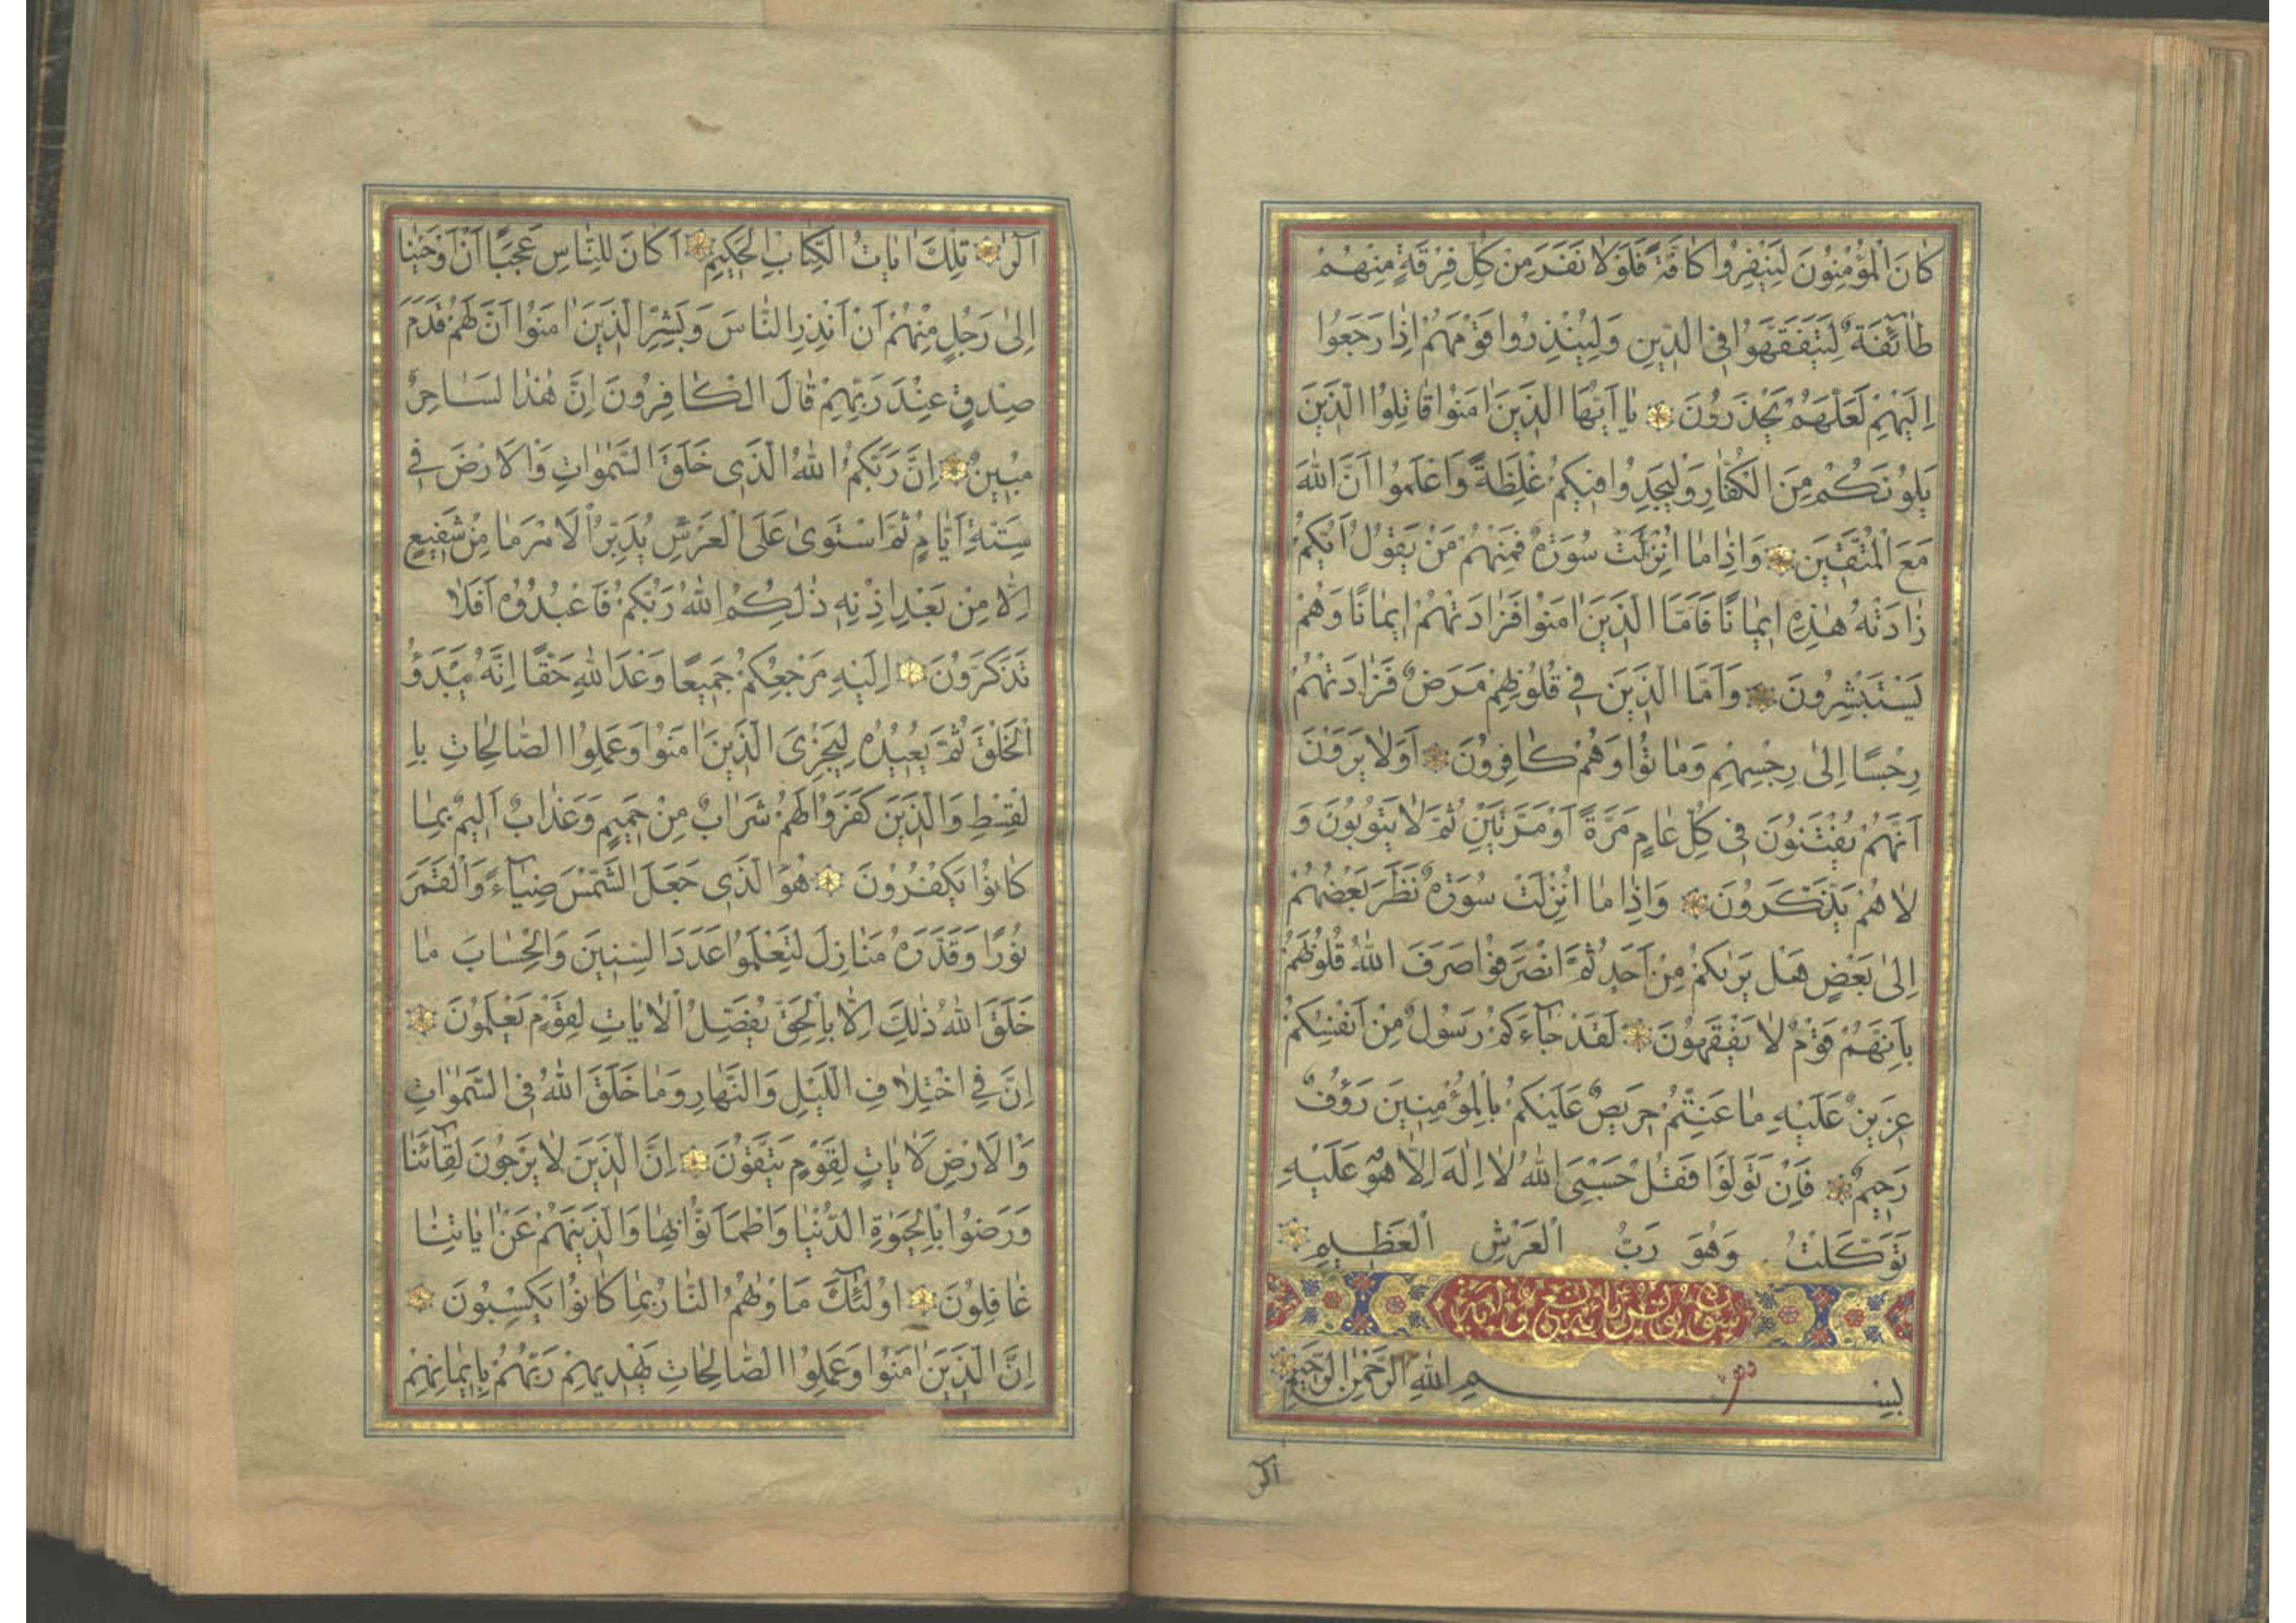 كَانَ الْمُؤْمِنُونَ لِيَنْفِرُوا كَافَّةً فَلَوْلَا نَفَرَ مِنْ كُلِّ فِرْقَةٍ مِنْهُمْ
طَائِفَةٌ لِيَتَفَقَّهُوا فِي الدِّينِ وَلِيُنْذِرُوا قَوْمَهُمْ إِذَا رَجَعُوا
إِلَيْهِمْ لَعَلَّهُمْ يَحْذَرُونَ يَا أَيُّهَا الَّذِينَ اٰمَنُوا قَاتِلُوا الَّذِينَ
يَلُونَكُمْ مِنَ الْكُفَّارِ وَلْيَجِدُوا فِيكُمْ غِلْظَةً وَاعْلَمُوا أَنَّ اللهَ
مَعَ الْمُتَّقِينَ وَإِذَا مَا أُنْزِلَتْ سُورَةٌ فَمِنْهُمْ مَنْ يَقُولُ أَيُّكُمْ
زَادَتْهُ هٰذِهِ إِيمَانًا فَأَمَّا الَّذِينَ اٰمَنُوا فَزَادَتْهُمْ إِيمَانًا وَهُمْ
يَسْتَبْشِرُونَ وَأَمَّا الَّذِينَ فِي قُلُوبِهِمْ مَرَضٌ فَزَادَتْهُمْ
رِجْسًا إِلىٰ رِجْسِهِمْ وَمَاتُوا وَهُمْ كَافِرُونَ أَوَلَا يَرَوْنَ
أَنَّهُمْ يُفْتَنُونَ فِي كُلِّ عَامٍ مَرَّةً أَوْ مَرَّتَيْنِ ثُمَّ لَا يَتُوبُونَ وَ
لَا هُمْ يَذَّكَّرُونَ وَإِذَا مَا أُنْزِلَتْ سُورَةٌ نَظَرَ بَعْضُهُمْ
إِلىٰ بَعْضٍ هَلْ يَرٰيكُمْ مِنْ أَحَدٍ ثُمَّ انْصَرَفُوا صَرَفَ اللهُ قُلُوبَهُمْ
بِأَنَّهُمْ قَوْمٌ لَا يَفْقَهُونَ لَقَدْ جَاءَكُمْ رَسُولٌ مِنْ أَنْفُسِكُمْ
عَزِيزٌ عَلَيْهِ مَا عَنِتُّمْ حَرِيصٌ عَلَيْكُمْ بِالْمُؤْمِنِينَ رَؤُفٌ
رَحِيمٌ فَإِنْ تَوَلَّوْا فَقُلْ حَسْبِيَ اللهُ لَا إِلٰهَ إِلَّا هُوَ عَلَيْهِ
تَوَكَّلْتُ وَهُوَ رَبُّ الْعَرْشِ الْعَظِيمِ
بِسْمِ اللهِ الرَّحْمٰنِ الرَّحِيمِ
الٓرٰ
الٓرٰ تِلْكَ اٰيَاتُ الْكِتَابِ الْحَكِيمِ أَكَانَ لِلنَّاسِ عَجَبًا أَنْ أَوْحَيْنَا
إِلىٰ رَجُلٍ مِنْهُمْ أَنْ أَنْذِرِ النَّاسَ وَبَشِّرِ الَّذِينَ اٰمَنُوا أَنَّ لَهُمْ قَدَمَ
صِدْقٍ عِنْدَ رَبِّهِمْ قَالَ الْكَافِرُونَ إِنَّ هٰذَا لَسَاحِرٌ
مُبِينٌ إِنَّ رَبَّكُمُ اللهُ الَّذِي خَلَقَ السَّمٰوَاتِ وَالْأَرْضَ فِي
سِتَّةِ أَيَّامٍ ثُمَّ اسْتَوىٰ عَلَى الْعَرْشِ يُدَبِّرُ الْأَمْرَ مَا مِنْ شَفِيعٍ
إِلَّا مِنْ بَعْدِ إِذْنِهِ ذٰلِكُمُ اللهُ رَبُّكُمْ فَاعْبُدُوهُ أَفَلَا
تَذَكَّرُونَ إِلَيْهِ مَرْجِعُكُمْ جَمِيعًا وَعْدَ اللهِ حَقًّا إِنَّهُ يَبْدَؤُ
الْخَلْقَ ثُمَّ يُعِيدُهُ لِيَجْزِيَ الَّذِينَ اٰمَنُوا وَعَمِلُوا الصَّالِحَاتِ بِا
لْقِسْطِ وَالَّذِينَ كَفَرُوا لَهُمْ شَرَابٌ مِنْ حَمِيمٍ وَعَذَابٌ أَلِيمٌ بِمَا
كَانُوا يَكْفُرُونَ هُوَ الَّذِي جَعَلَ الشَّمْسَ ضِيَاءً وَالْقَمَرَ
نُورًا وَقَدَّرَهُ مَنَازِلَ لِتَعْلَمُوا عَدَدَ السِّنِينَ وَالْحِسَابَ مَا
خَلَقَ اللهُ ذٰلِكَ إِلَّا بِالْحَقِّ يُفَصِّلُ الْاٰيَاتِ لِقَوْمٍ يَعْلَمُونَ
إِنَّ فِي اخْتِلَافِ اللَّيْلِ وَالنَّهَارِ وَمَا خَلَقَ اللهُ فِي السَّمٰوَاتِ
وَالْأَرْضِ لَاٰيَاتٍ لِقَوْمٍ يَتَّقُونَ إِنَّ الَّذِينَ لَا يَرْجُونَ لِقَائَنَا
وَرَضُوا بِالْحَيٰوةِ الدُّنْيَا وَاطْمَأَنُّوا بِهَا وَالَّذِينَ هُمْ عَنْ اٰيَاتِنَا
غَافِلُونَ أُولٰئِكَ مَأْوٰيهُمُ النَّارُ بِمَا كَانُوا يَكْسِبُونَ
إِنَّ الَّذِينَ اٰمَنُوا وَعَمِلُوا الصَّالِحَاتِ يَهْدِيهِمْ رَبُّهُمْ بِإِيمَانِهِمْ